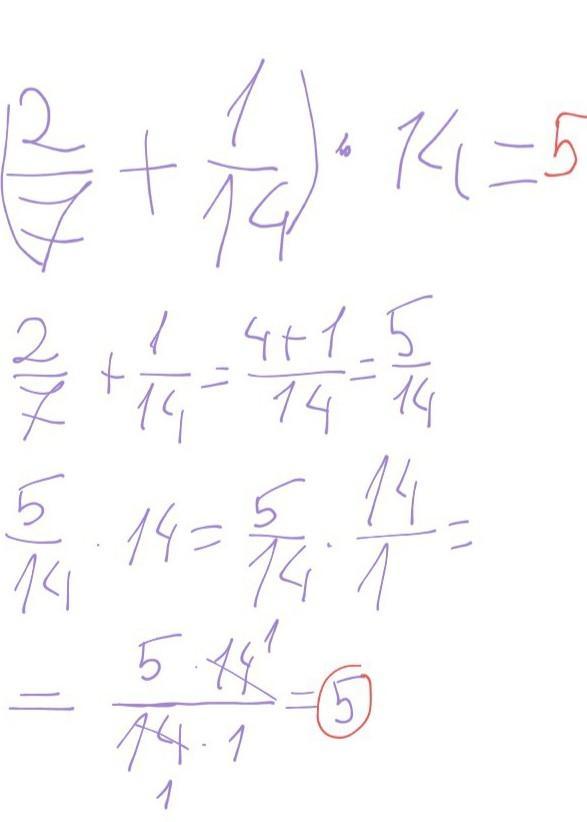 (2/7 + 1/14) · 14 = 5
2/7 + 1/14 = 4+1/14 = 5/14
5/14 · 14 = 5/14 · 14/1 =
= 5 · 14 1/14 · 1 1 = 5